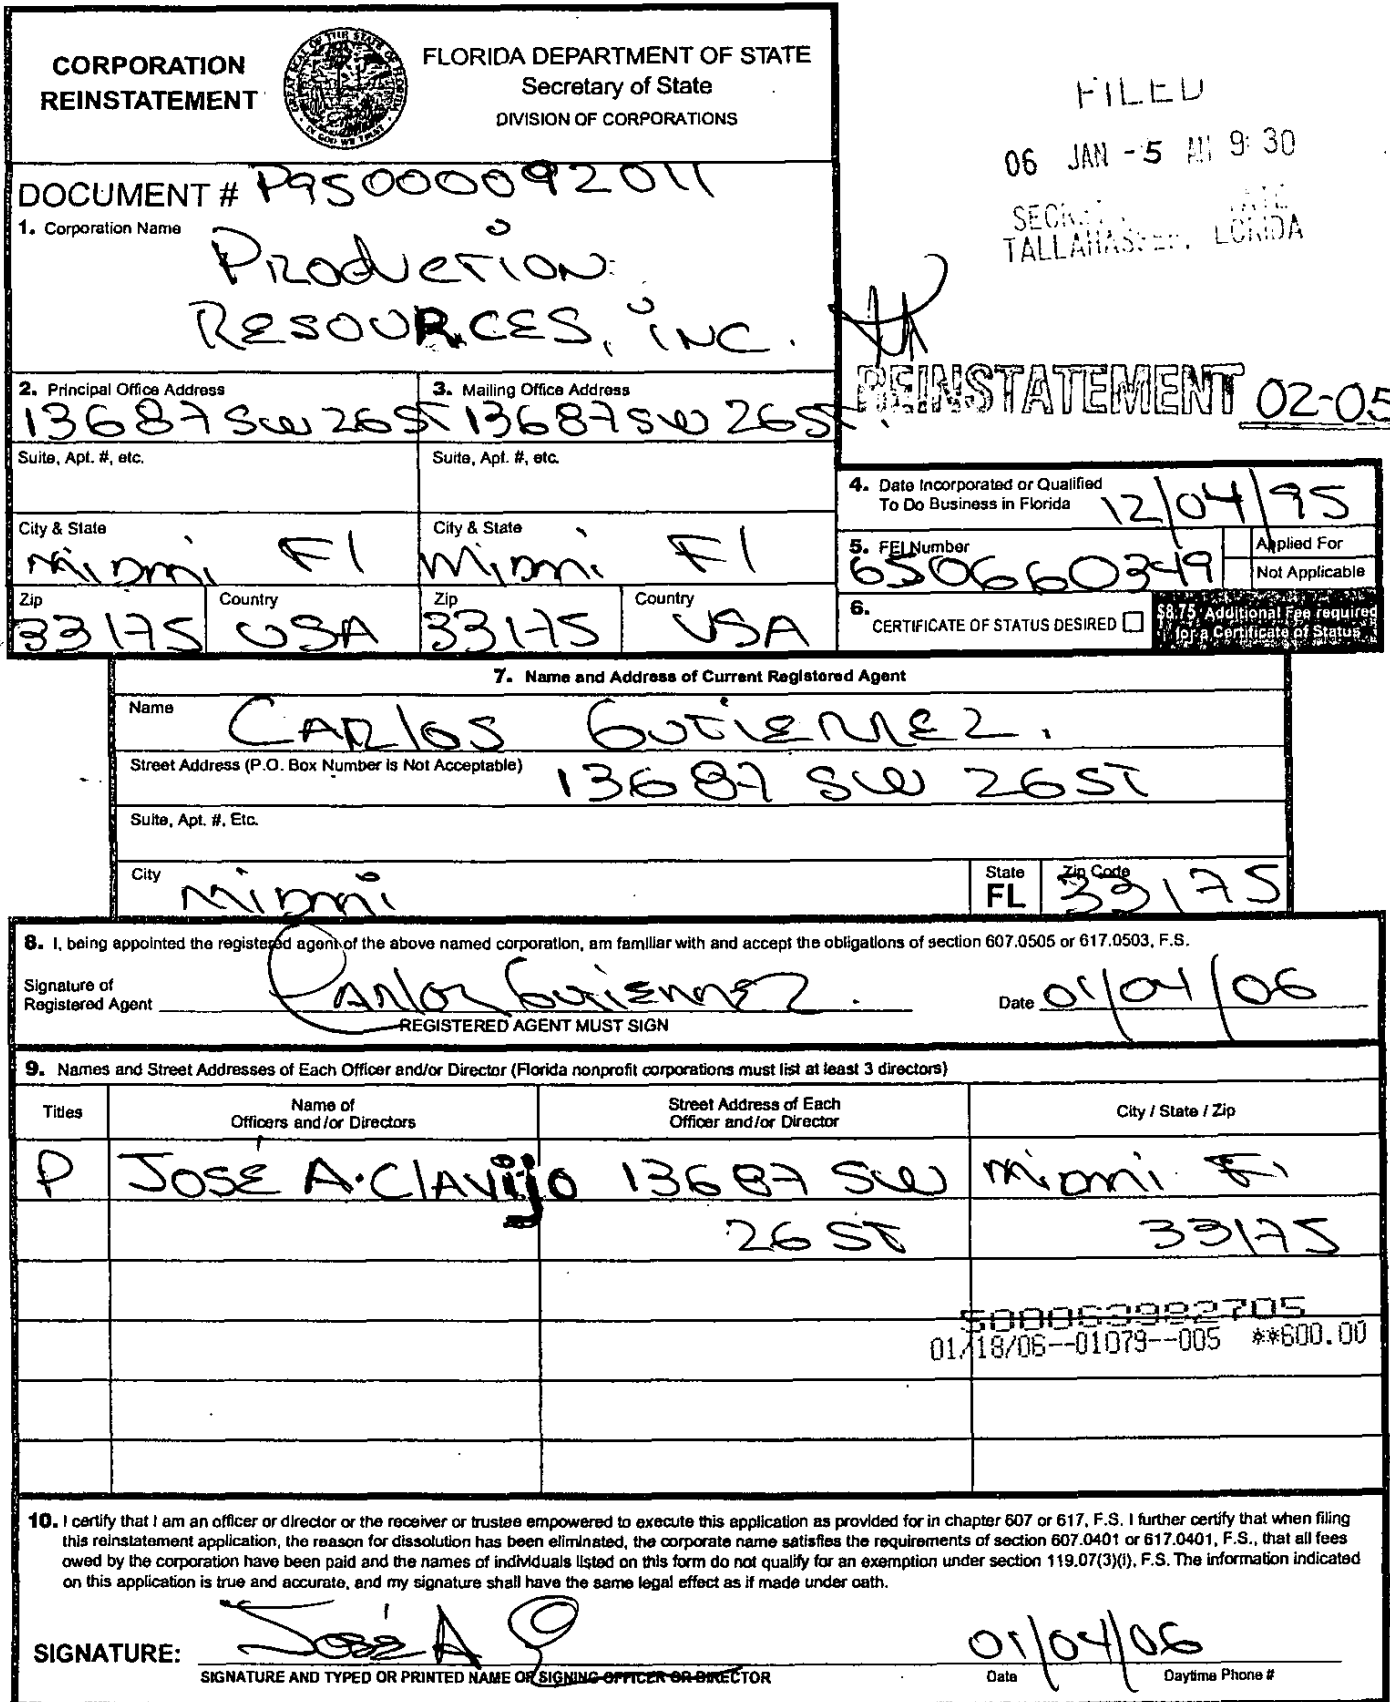 CORPORATION
REINSTATEMENT
GREAT SEAL OF THE STATE OF FLORIDA
IN GOD WE TRUST
FLORIDA DEPARTMENT OF STATE
Secretary of State
DIVISION OF CORPORATIONS
FILED
06 JAN -5 AM 9:30
TALLAHASSEE, FLORIDA
DOCUMENT # P95000092011
1. Corporation Name
PRODUCTION
RESOURCES, INC.
REINSTATEMENT 02-05
2. Principal Office Address
13687 SW 26 ST
3. Mailing Office Address
13687 SW 26 ST.
Suite, Apt. #, etc.
Suite, Apt. #, etc.
City & State
Miami Fl
City & State
Miami Fl
Zip
33175
Country
USA
Zip
33175
Country
USA
4. Date Incorporated or Qualified
To Do Business in Florida 12/04/95
5. FEI Number
650660349
Applied For
Not Applicable
6. CERTIFICATE OF STATUS DESIRED
$8.75 Additional Fee required
for a Certificate of Status
7. Name and Address of Current Registered Agent
Name CARLOS GUTIERREZ.
Street Address (P.O. Box Number is Not Acceptable) 13687 SW 26 ST
Suite, Apt. #, Etc.
City Miami
State
FL
Zip Code
33175
8. I, being appointed the registered agent of the above named corporation, am familiar with and accept the obligations of section 607.0505 or 617.0503, F.S.
Signature of
Registered Agent Carlos Gutierrez. Date 01/04/06
REGISTERED AGENT MUST SIGN
9. Names and Street Addresses of Each Officer and/or Director (Florida nonprofit corporations must list at least 3 directors)
Titles
Name of
Officers and/or Directors
Street Address of Each
Officer and/or Director
City / State / Zip
P JOSÉ A. Clavijo 13687 SW Miami Fl
26 ST 33175
500063982705
01/18/06--01079--005 **600.00
10. I certify that I am an officer or director or the receiver or trustee empowered to execute this application as provided for in chapter 607 or 617, F.S. I further certify that when filing
this reinstatement application, the reason for dissolution has been eliminated, the corporate name satisfies the requirements of section 607.0401 or 617.0401, F.S., that all fees
owed by the corporation have been paid and the names of individuals listed on this form do not qualify for an exemption under section 119.07(3)(i), F.S. The information indicated
on this application is true and accurate, and my signature shall have the same legal effect as if made under oath.
SIGNATURE: José A 01/04/06
SIGNATURE AND TYPED OR PRINTED NAME OF SIGNING OFFICER OR DIRECTOR
Date
Daytime Phone #